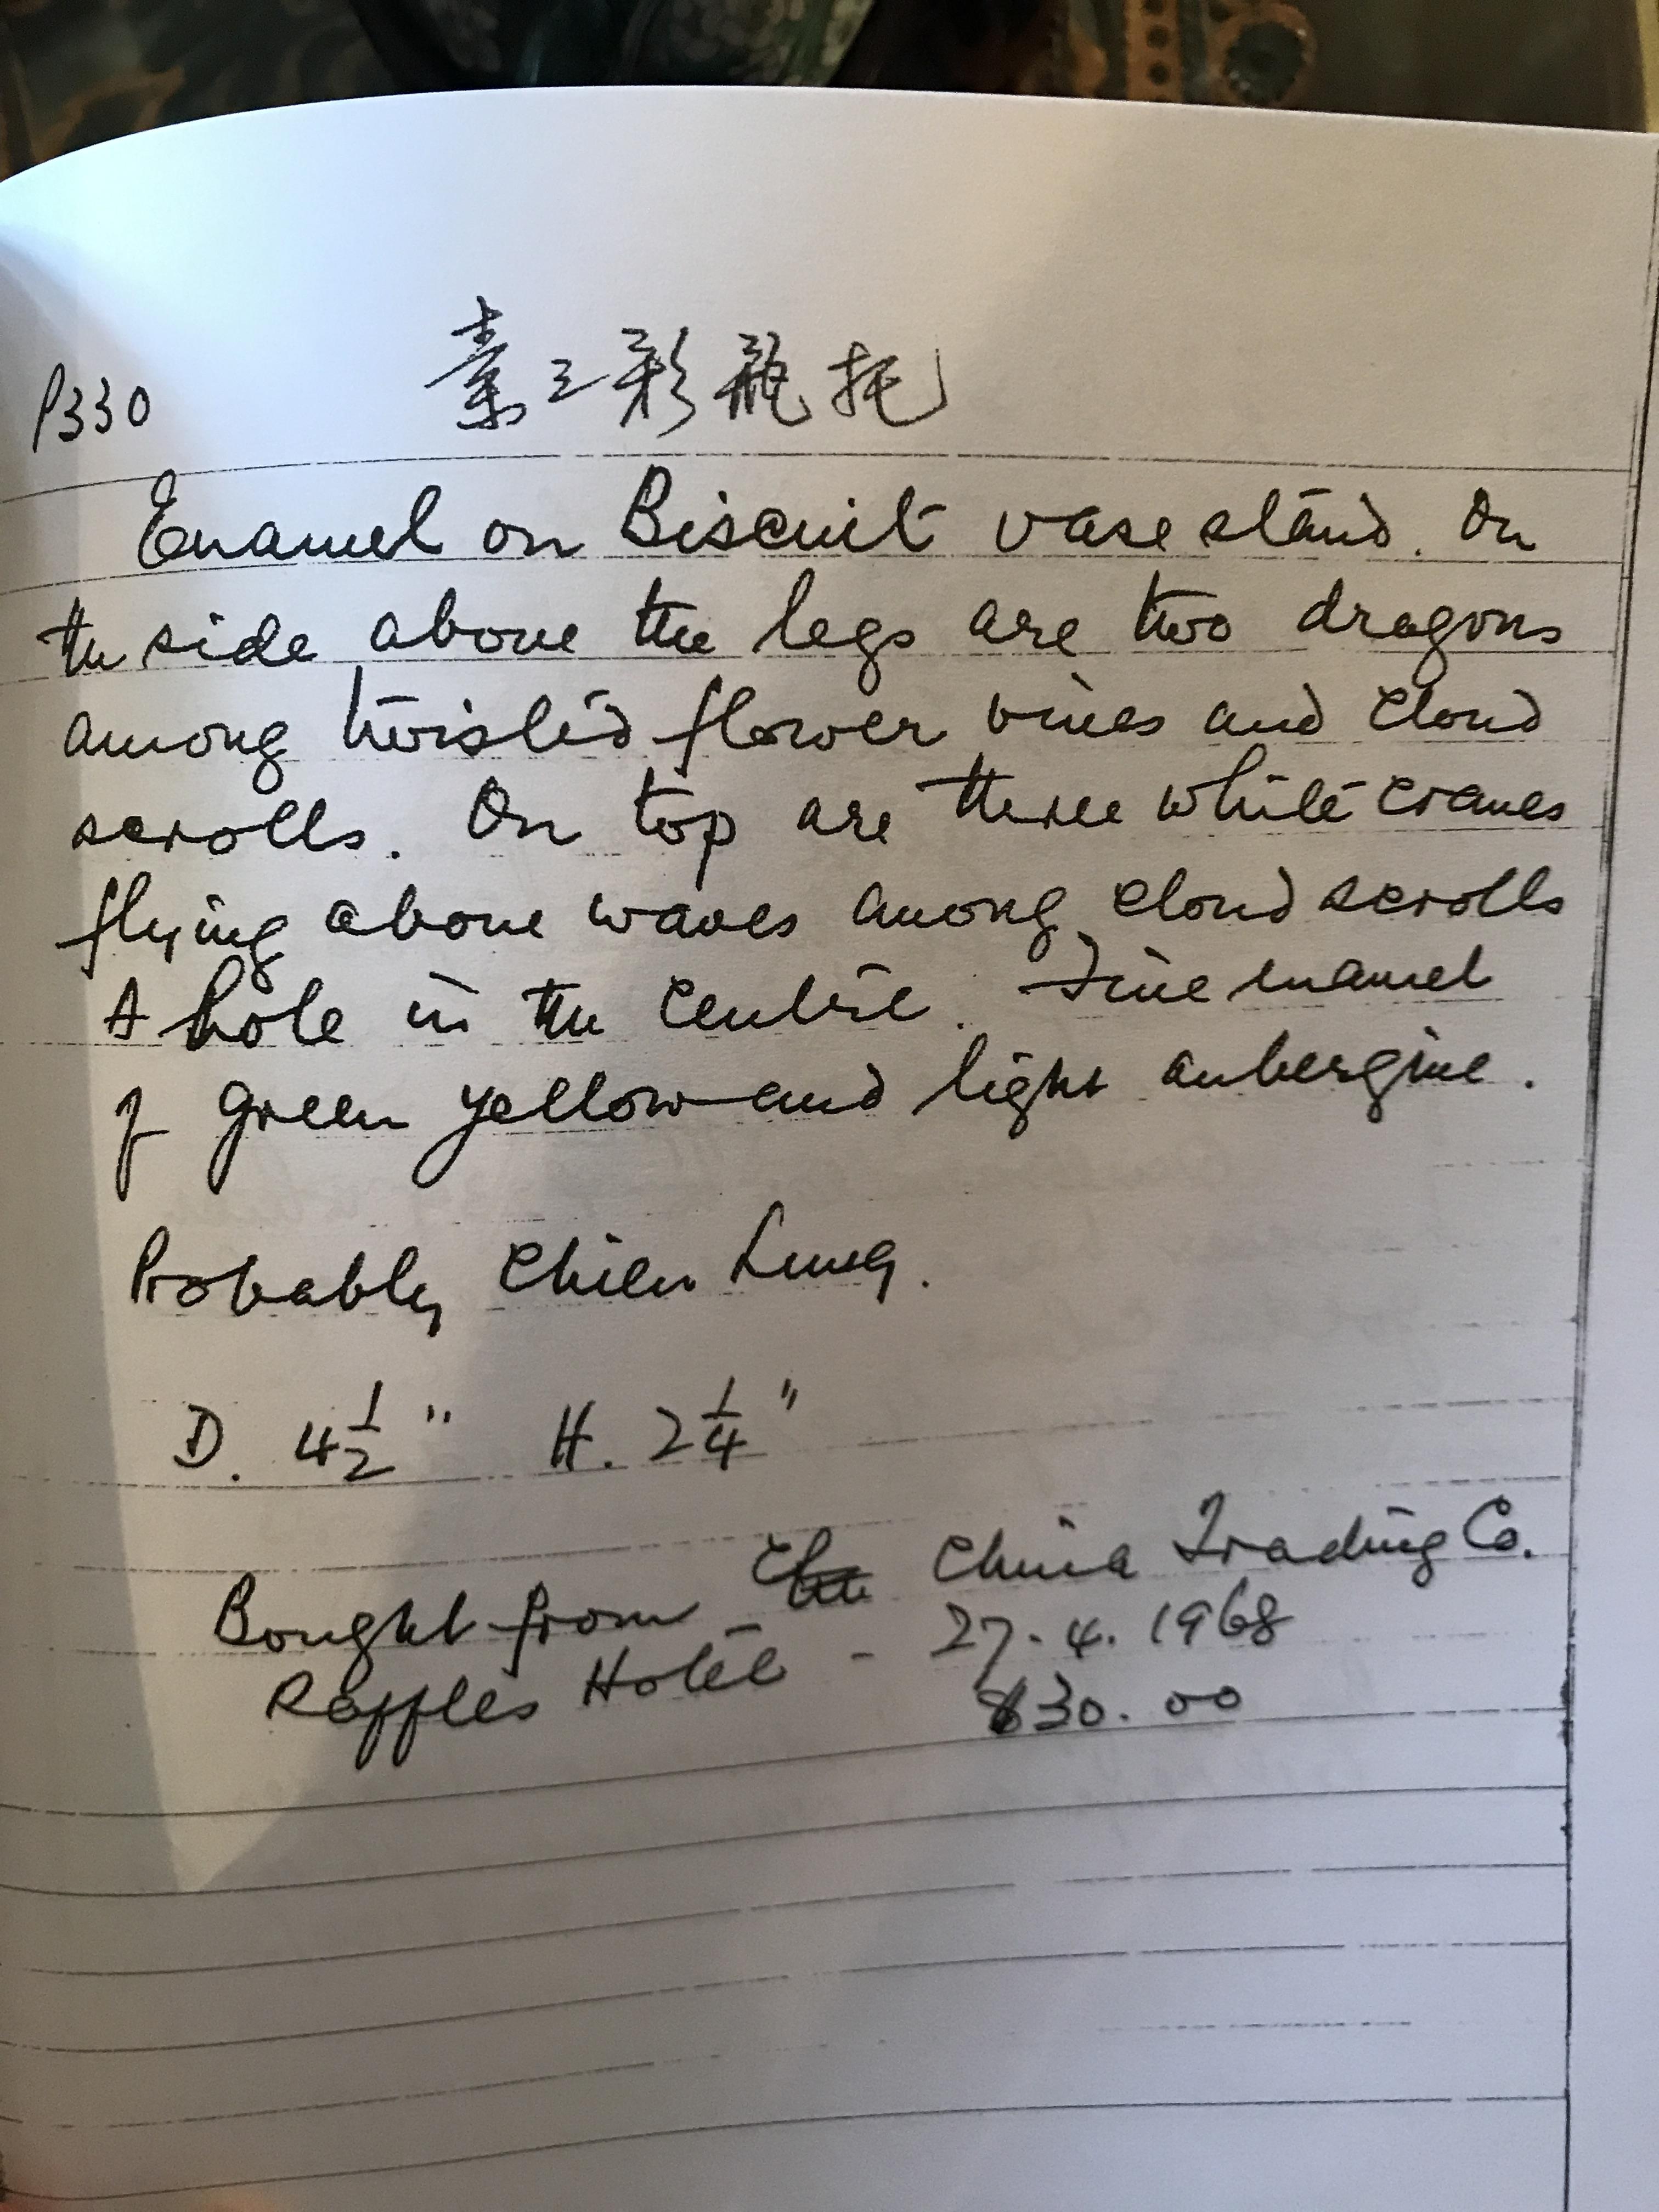 P330 素三彩龍托
Enamel on Biscuit vase stand. On
the side above the legs are two dragons
among twisted flower vines and cloud
scrolls. On top are three white cranes
flying above waves among cloud scrolls
A hole in the centre. Fine enamel
of green yellow and light aubergine.
Probably Chien Lung.
D. 4 1/2" H. 2 1/4"
Bought from China Trading Co.
Raffles Hotel - 27.4.1968
$30.00